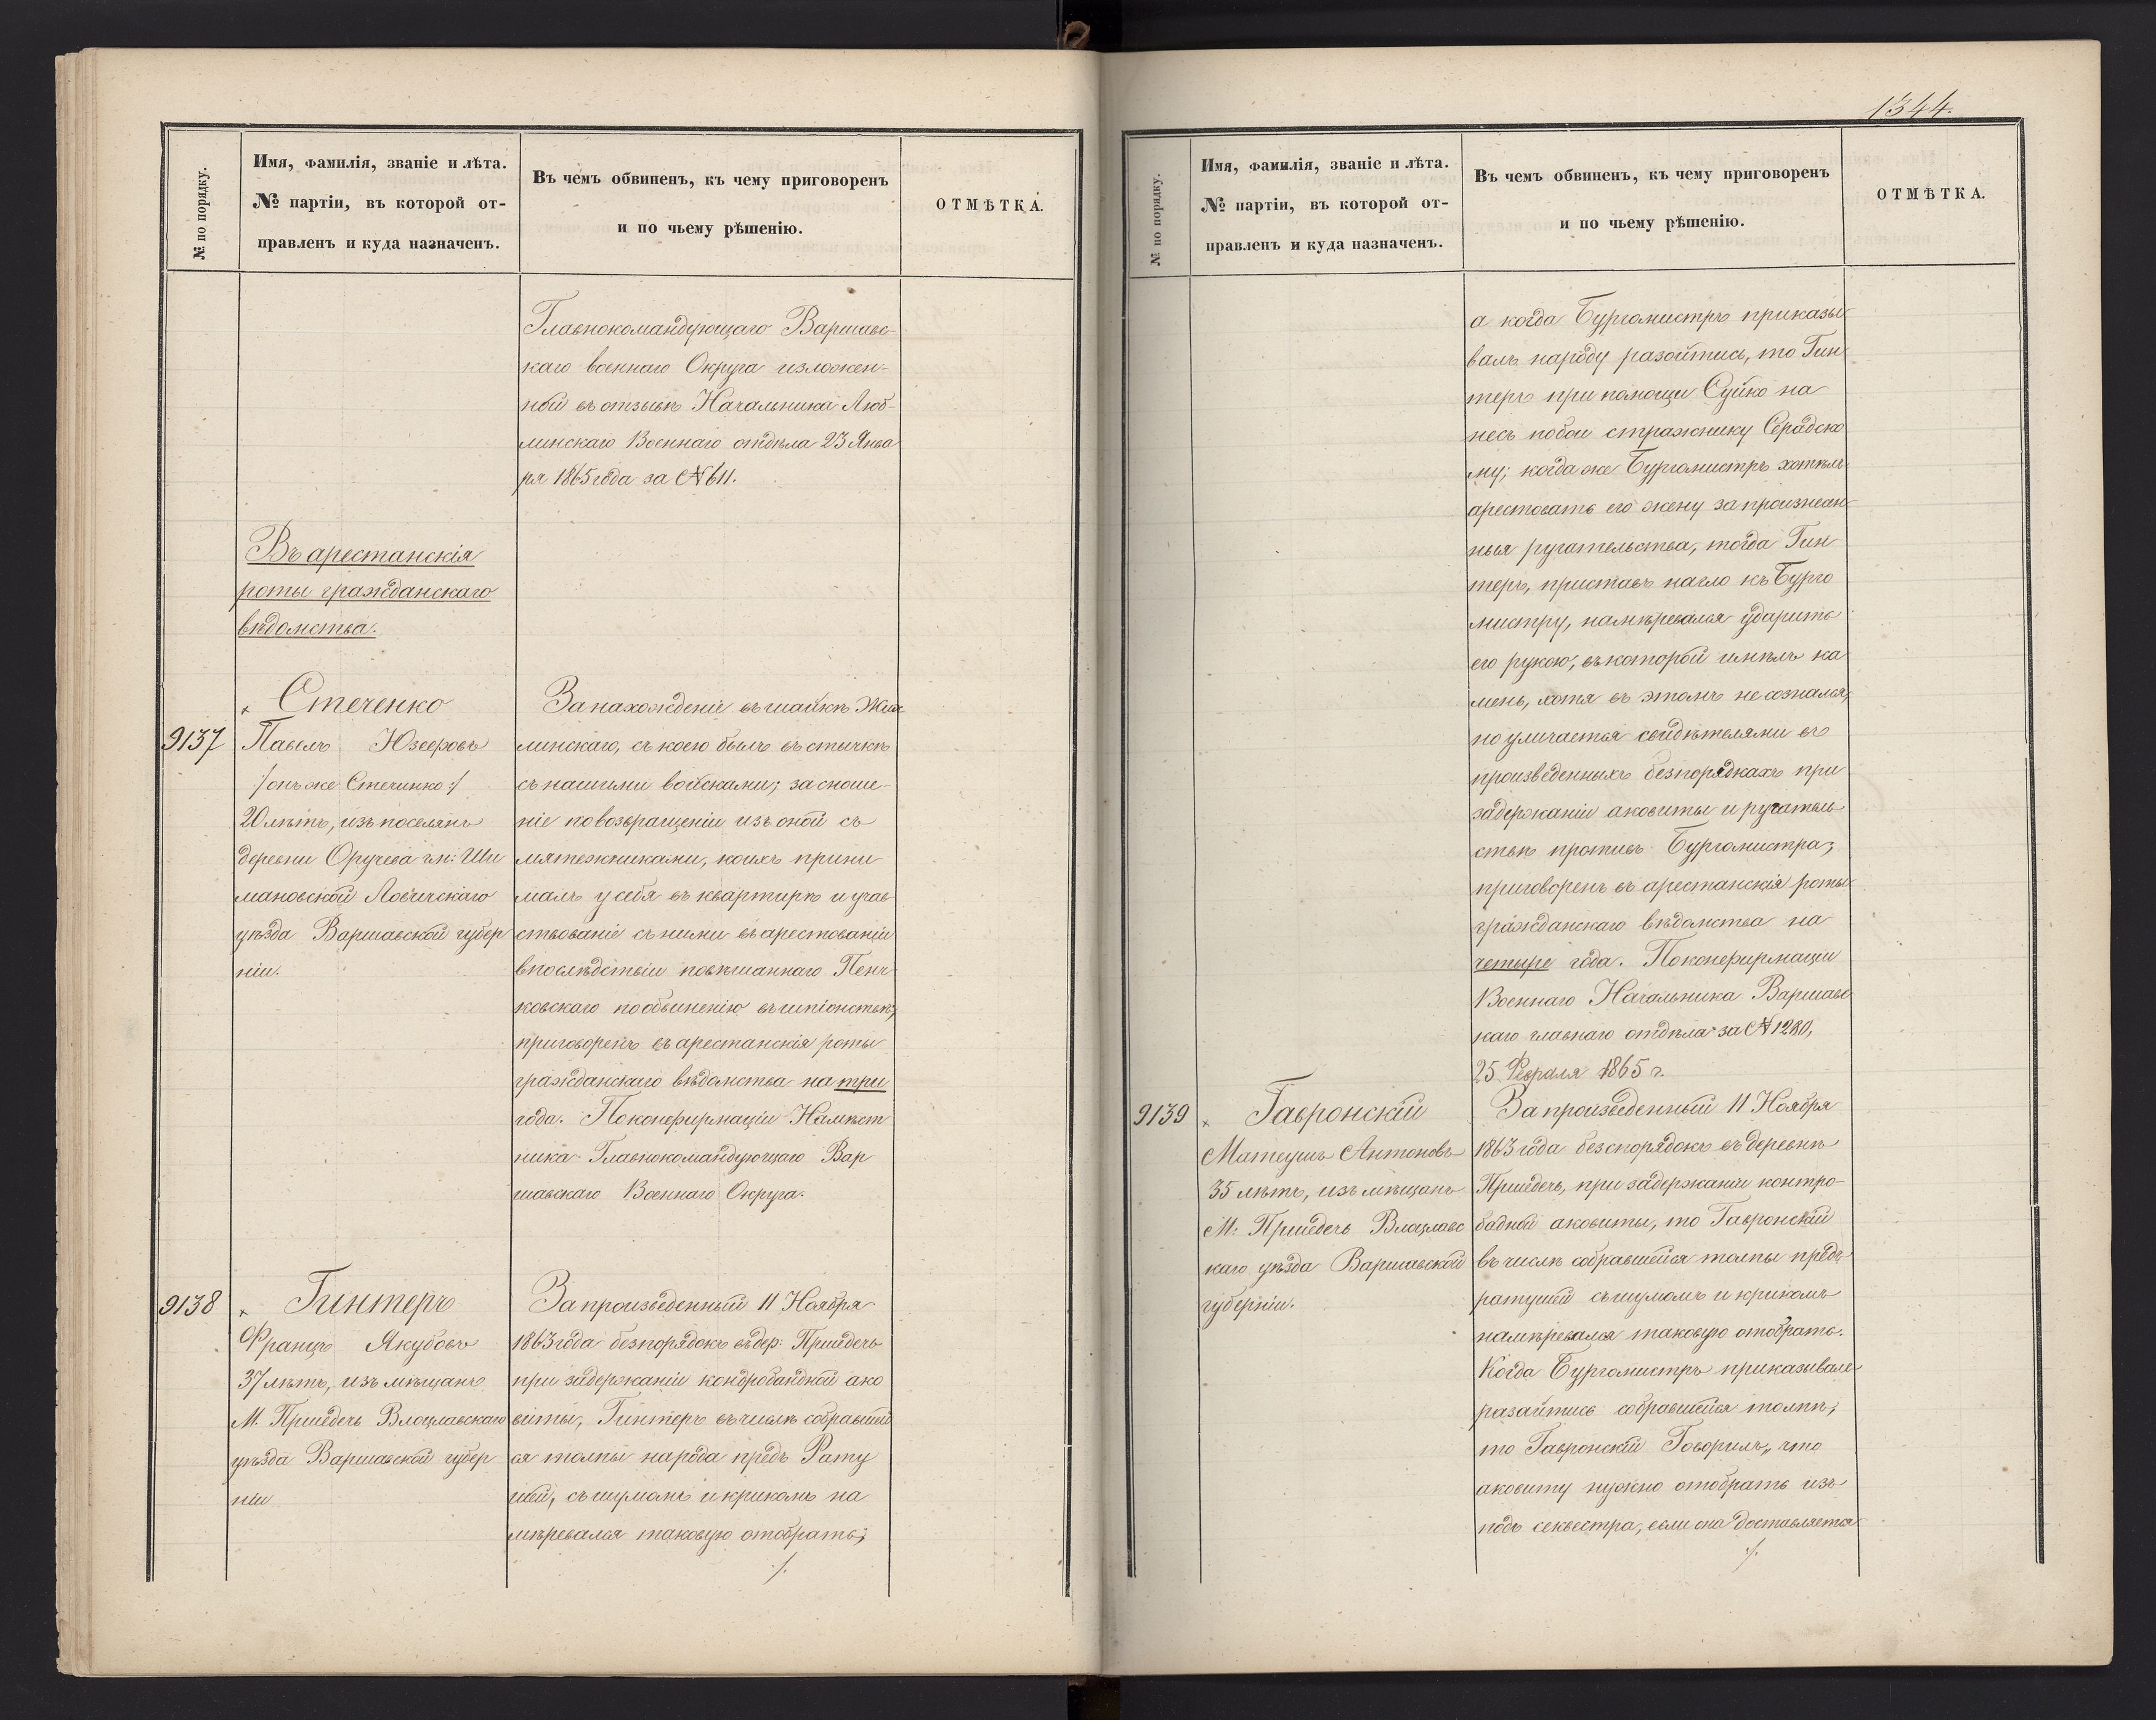 1344.
№ по порядку.
Имя, фамилія, званіе и лѣта.
№ партіи, въ которой от-
правленъ и куда назначенъ.
Въ чемъ обвиненъ, къ чему приговоренъ
и по чьему рѣшенію.
ОТМѢТКА.
Главнокомандующаго Варшавс-
каго военнаго Округа изложен-
ной въ отзывѣ Начальника Люб-
линскаго Военнаго отдѣла 23 Янва
ря 1865 года за № 611.
Въ арестанскія
роты гражданскаго
вѣдомства.
9137
× Стеченко
Павелъ Юзефовъ
/:онъ же Стечинко:/
20 лѣтъ, изъ поселянъ
деревни Оручева гм: Ши
мановской Ловичскаго
уѣзда Варшавской губер
ніи.
За нахожденіе въ шайкѣ Жих
линскаго, съ коею былъ въ стычкѣ
съ нашими войсками; за сноше-
ніе по возвращеніи изъ оной съ
мятежниками, коихъ прини
малъ у себя въ квартирѣ и учав
ствованіе съ ними въ арестованіи
впослѣдствіи повѣшаннаго Пенч
ковскаго по обвиненію въ шпіонствѣ,
приговоренъ въ арестанскія роты
гражданскаго вѣдомства на три
года. По конфирмаціи Намѣст
ника Главнокомандующаго Вар
шавскаго Военнаго Округа.
9138
× Гинтеръ
Францъ Якубовъ
37 лѣтъ, изъ мѣщанъ
М. Пршедечь Влоцлавскаго
уѣзда Варшавской губер
ніи
За произведенный 11 Ноября
1863 года безпорядокъ въ дер: Пршедечь
при задержаніи кондробандной ако
виты, Гинтеръ въ числѣ собравшей
ся толпы народа предъ Рату
шей, съ шумомъ и крикомъ на
мѣревался таковую отобрать;
./.
№ по порядку.
Имя, фамилія, званіе и лѣта.
№ партіи, въ которой от-
правленъ и куда назначенъ.
Въ чемъ обвиненъ, къ чему приговоренъ
и по чьему рѣшенію.
ОТМѢТКА.
а когда Бургомистръ приказы
валъ народу разойтись, то Гин
теръ при помощи Суйко на
несъ побои стражнику Серадско
му; когда же Бургомистръ хотѣлъ
арестовать его жену за произнесан
ныя ругательства, тогда Гин
теръ, приставъ нагло къ Бурго
мистру, намѣревался ударить
его рукою, въ которой имѣлъ ка
мень, хотя въ этомъ не сознался,
но уличается свидѣтелями въ
произведенныхъ безпорядкахъ при
задержаніи аковиты и ругатель
ствѣ противъ Бургомистра;
приговоренъ въ арестанскія роты
гражданскаго вѣдомства на
четыре года. По конфирмаціи
Военнаго Начальника Варшавс
каго главнаго отдѣла за № 1280,
25 Февраля 1865 г.
9139
× Гавронскій
Матеушъ Антоновъ
35 лѣтъ, изъ мѣщанъ
М: Пршедечь Влацлавс
каго уѣзда Варшавской
губерніи.
За произведенный 11 Ноября
1863 года безспорядокъ въ деревнѣ
Пршедечь, при задержаніи контро-
бадной аковиты, то Гавронскій
въ числѣ собравшейся толпы предъ
ратушей съ шумомъ и крикомъ
намѣревался таковую отобрать.
Когда Бургомистръ приказывалъ
разайтись собравшейся толпѣ,
то Гавронскій Говорилъ, что
аковиту нужно отобрать изъ
подъ секвестра, если она доставляется
./.